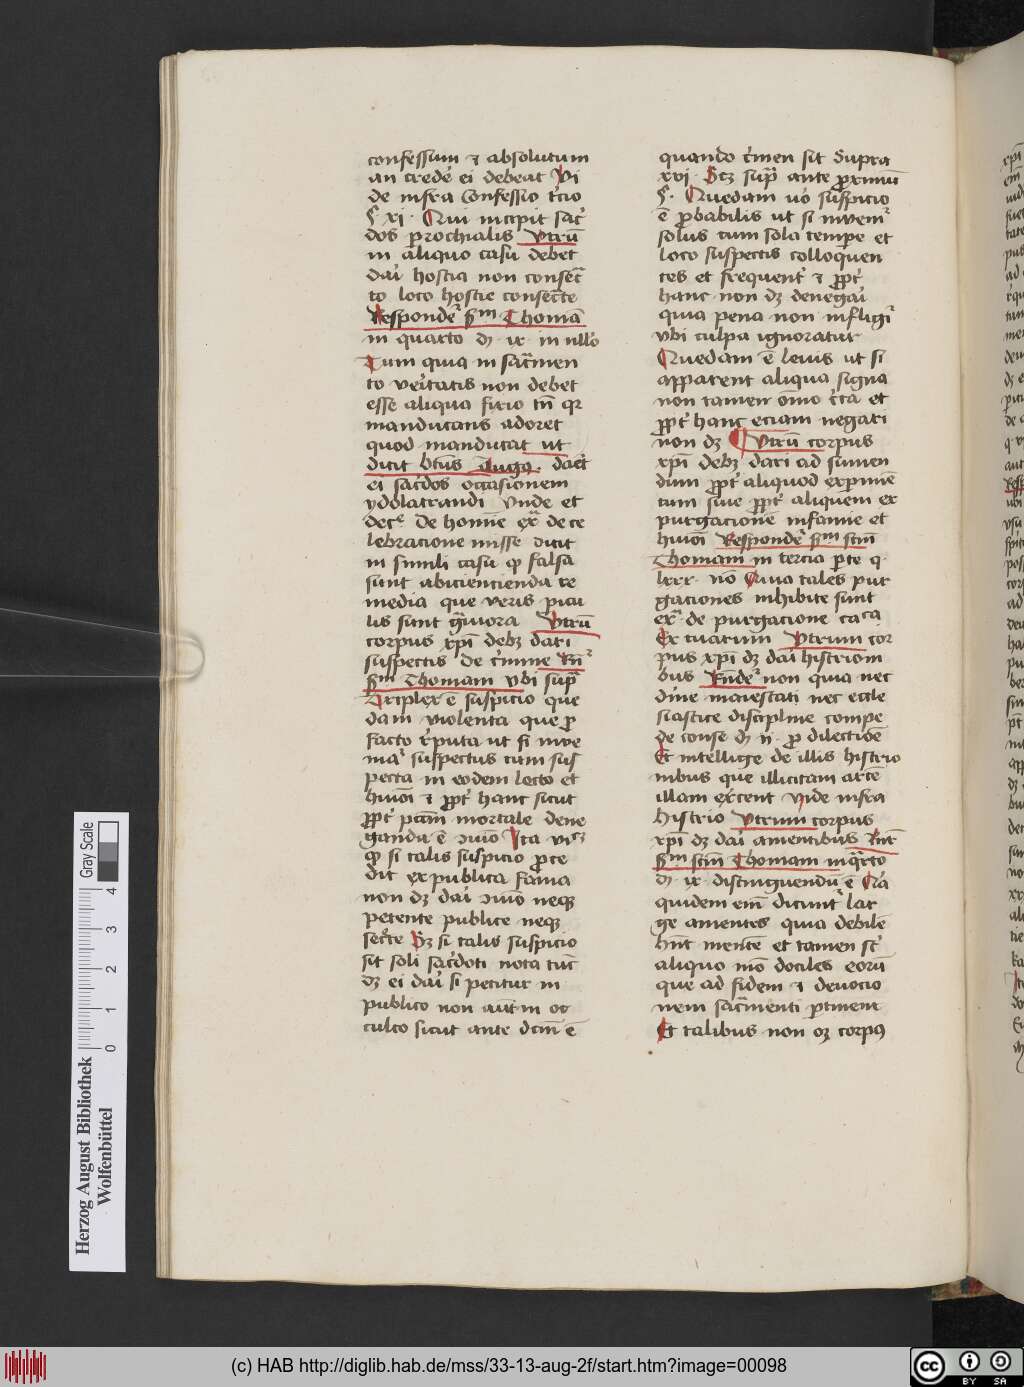 confessum ⁊ absolutum
an crede᷒ ei debeat Vi
de infra Confessio t᷒cio
§ xi · Qui incipit sac᷒
dos prochialis Vtrū
in aliquo casu debet
dari hostia non consec̄
to loco hostie consecrte
Responde᷒ sm Thomā
in quarto di · ix · in nll᷒o
Cum quia in sacr̄men
to veritatis non debet
esse aliqua fictio tn̄ qr
manducans adoret
quod manducat ut
dicit btūs Augꝰ · dar̄et
ei sac᷒dos occasionem
ydolatrandi Vnde et
dece᷒ · de homīne ex̄ de ce
lebracione misse dicit
in simili casu qp falsa
sunt abicienda re
media que veris picu
lis sunt gr̄uiora Vtrū
corpus xpī debꝫ dari
suspectis de c᷒mīne Rn᷒
sm Thomam vbi sup̄
Triplex ē suspicio que
dam violenta que p
facto r᷒puta ut si inue
niat᷒ suspectus cum sus
pecta in eodem lecto et
huiōi ⁊ ppt᷒ hanc sicut
ppt᷒ pccm̄ mortale dene
ganda ē ɔiuio Ita vicꝫ
qp si talis suspicio pce
dit ex publica fama
non dꝫ dari ɔiuio neqꝫ
petente publice neqꝫ
secr᷒te Sꝫ si talis suspicio
sit soli sac᷒doti nota tūc
dꝫ ei dari si petitur in
publico non aūt in oc
culto sicut ante dcm̄ ē
quando c᷒imen sit Supra
xvi · Scꝫ sup̄ ante proximū
§ · Quedam uō suspicio
ē probabilis ut si inueni᷒
solus cum sola tempe et
loco suspectis colloquen
tes et frequent᷒ ⁊ ppt᷒
hanc non dꝫ denegari
quia pena non infligi᷒
vbi culpa ignoratur
Quedam ē leuis ut si
apparent aliqua signa
non tamen omīo c᷒ta et
ppt᷒ hanc eciam negari
non dꝫ ¶ Vtrū corpus
xpī debꝫ dari ad sumen
dum ppt᷒ aliquod exprimē
tum siue ppt᷒ aliquem ex
purgacionē infamie et
huiōi Responde᷒ sm scm̄
Thomam in tercia pte q ·
lxxx · nō Quia tales pur
gaciones inhibite sunt
ex᷒ de purgacione ca ca
Ex tuarum Vtrum cor
pus xpī dꝫ dari histrioni
bus Rn̄de᷒ non quia nec
diīne maiestati nec eccle
siastice discipline compe
de conse di ii · pro dilectiōē
Et intellige de illis histrio
nibus que illicitam artē
illam ex᷒cent Vide infra
histrio Vtrum corpus
xpī dꝫ dari amentibus Rnt᷒
sm scm̄ Thomam in q᷒rto
di · ix · distinguendū ē Nā
quidem em̄ dicunt᷒ lar
ge amentes quia debilē
hn̄t mentē et tamen st᷒
aliquo mō dociles eorū
que ad fidem ⁊ deuocio
nem sacr̄menti ptinent
Et talibus non oꝫ corpꝯ
Herzog August Bibliothek
Wolfenbüttel
Gray Scale
0 1 2 3 4
(c) HAB http://diglib.hab.de/mss/33-13-aug-2f/start.htm?image=00098
cc BY SA